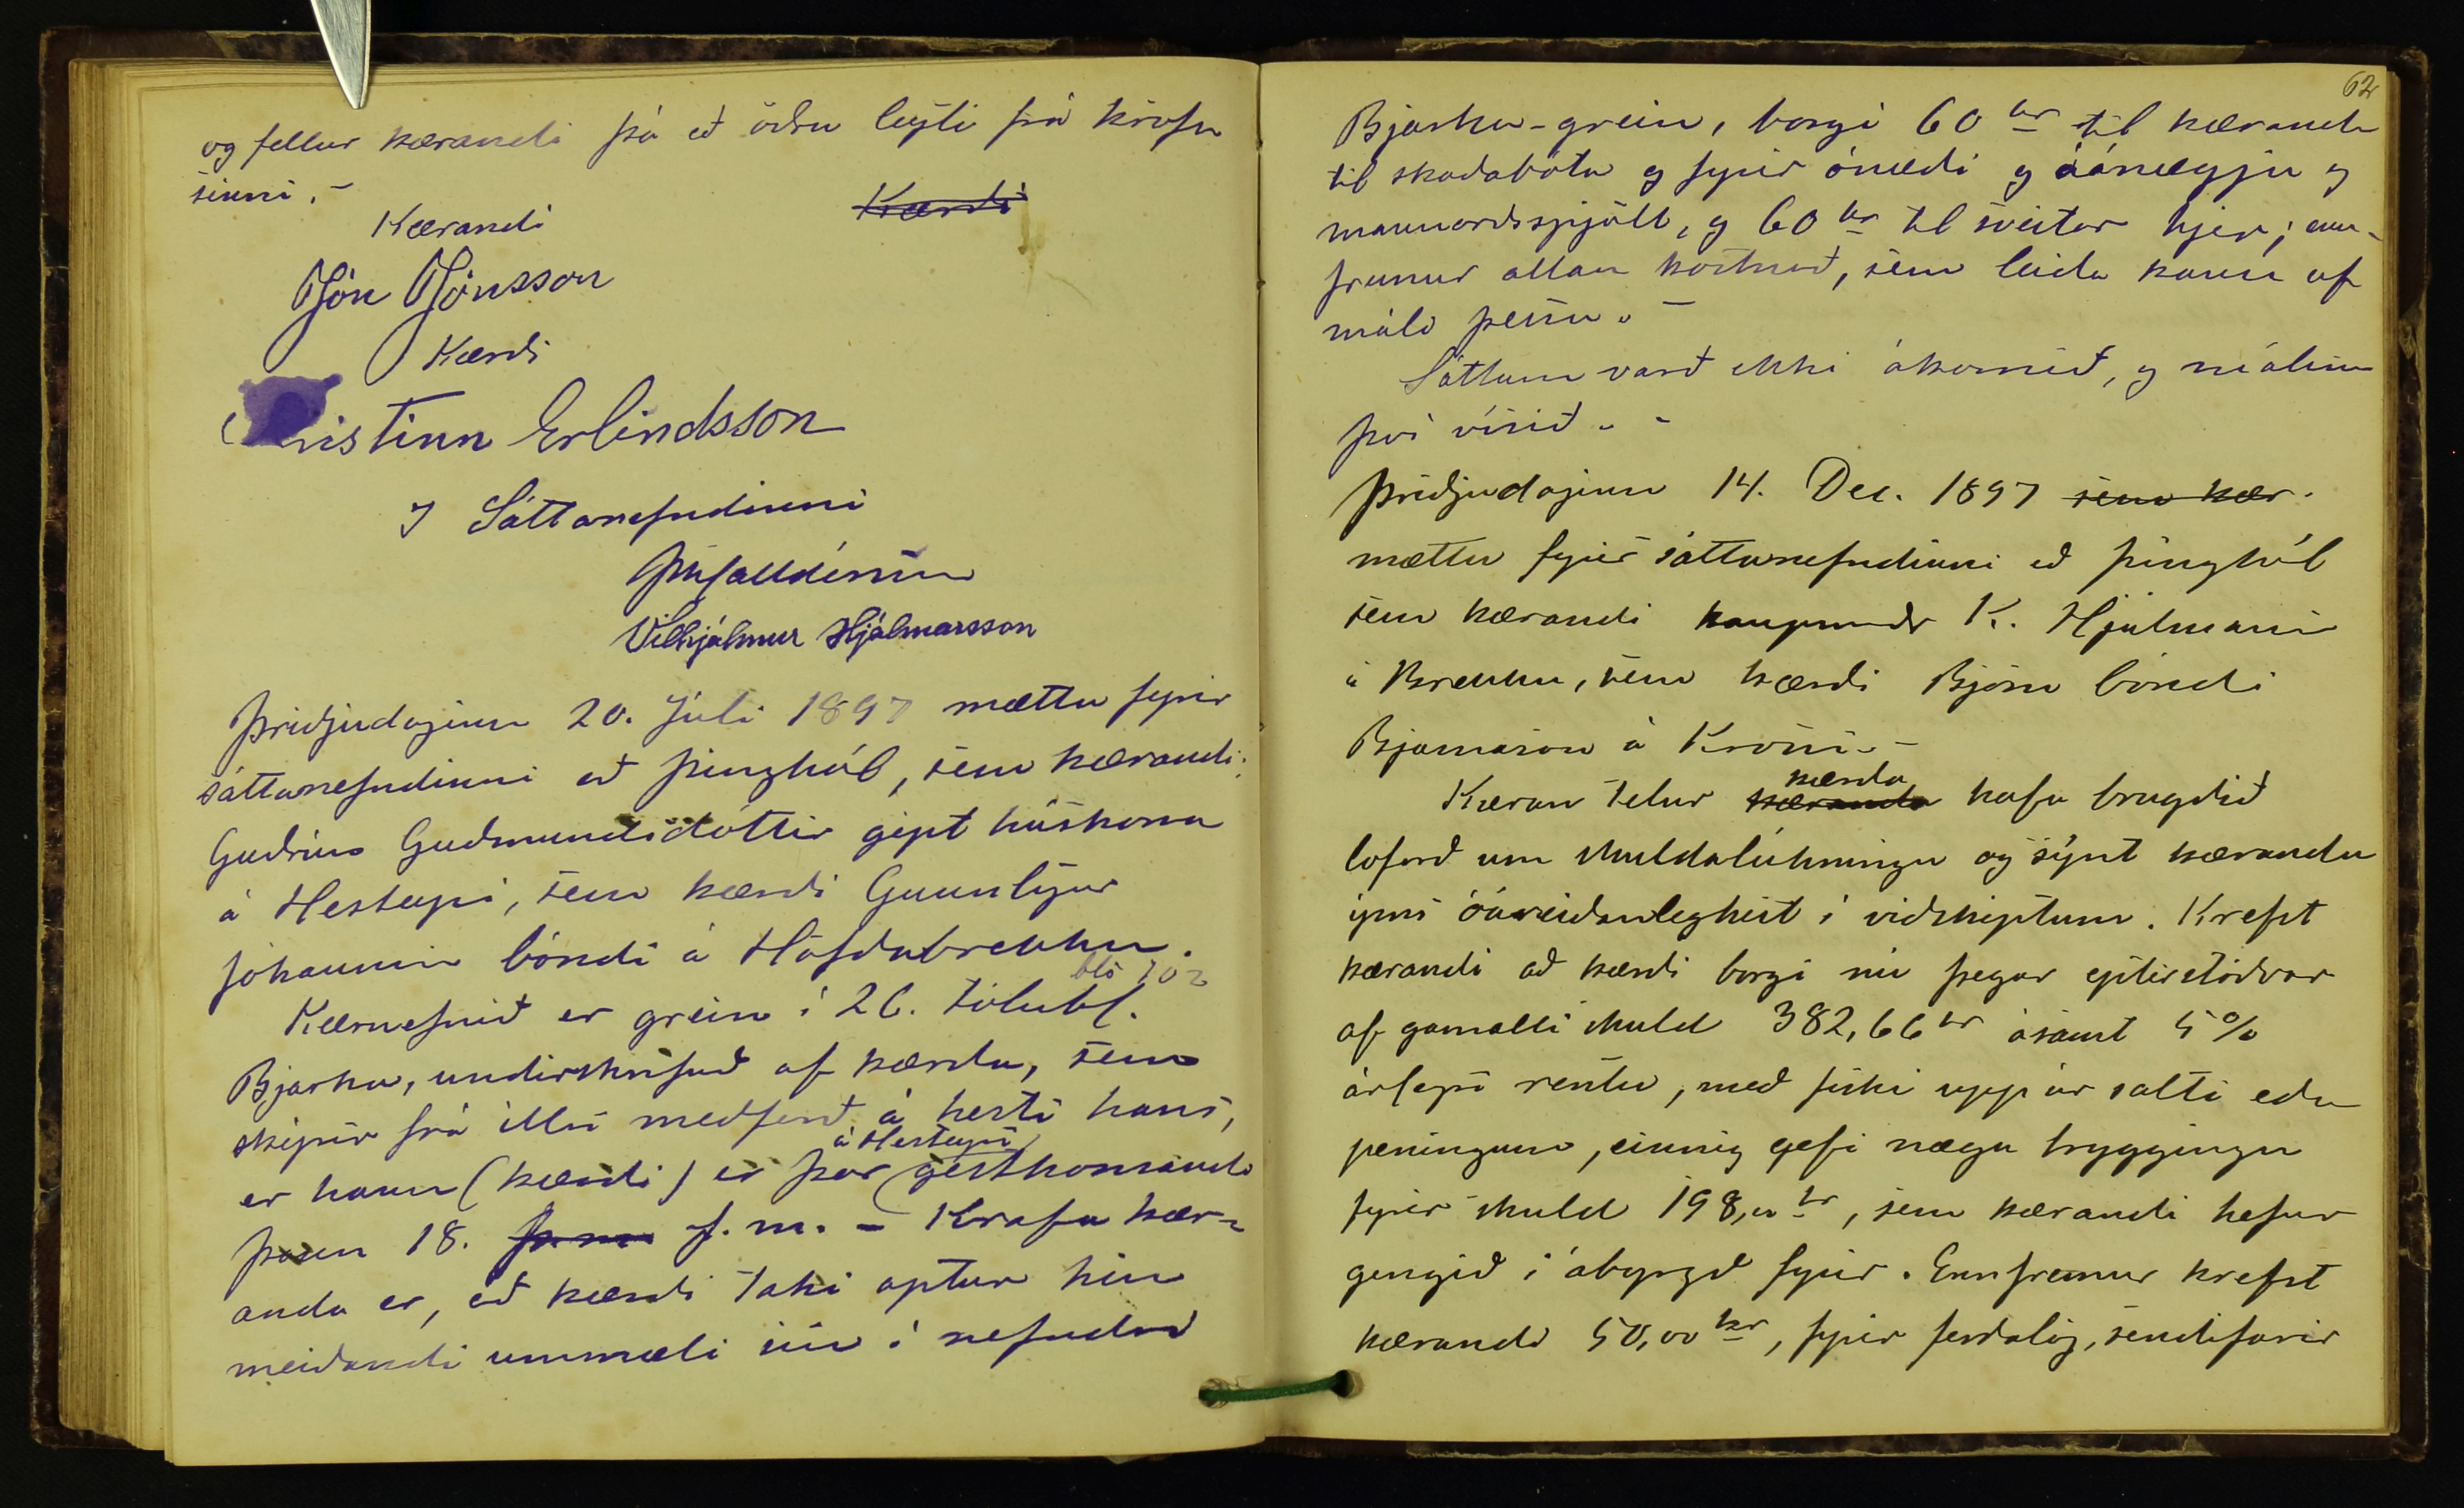 og fellur kærandi þá að öðru leyti frá kröfu
sinni. -
Kærandi
Kærði
Jón Jónsson
Kærði
Kristinn Erlindsson
Í Sáttanefndinni
Vilhjálmur Hjálmarsson
Þriðjudaginn 20. Júlí 1897 mættu fyrir
sáttanefndinni að Þinghól, sem kærandi:
Guðrún Guðmundsdóttir gipt húskona
á Hesteyri, sem kærði Gunnlögur
Jóhannsson bóndi á Höfðabrekku.
Kæruefnið er grein í 26. tölubl. bls 102
Bjarka, undirskrifuð af kærða, sem
skýrir frá illri meðferð á hesti hans,
er hann (kærði) er þar á Hesteyri gestkomandi
þann 18. þ. m. f. m. - Krafa kær-
anda er, að kærði taki aptur hin
meiðandi ummæli sín í nefndri
62
Bjarka-grein, borgi 60 kr til kæranda
til skaðabóta og fyrir ónæði og óánægju og
mannorðsspjöll, og 60 kr til sveitar hjer; enn-
fremur allan kostnað, sem leiða kann af
máli þessu. -
Sáttum varð ekki ákomið, og málinu
því vísið. -
Þriðjudaginn 14. Dec. 1897 sem kær.
mættu fyrir sáttanefndinni að Þinghól
sem kærandi kaupmaðr K. Hjálmarsson
á Brekku, sem kærði Björn bóndi
Bjarnason á Krossi. -
Kæran telur kæranda kærða hafa brugðið
loforð um skuldalúkningu og sýnt kæranda
ýms óáreiðanlegheit í viðskiptum. Krefst
kærandi að kærði borgi nú þegar eptirstöðvar
af gamalli skuld 382,66 kr ásamt 5 %
árlegri rentu, með fiski upp úr salti eða
peningum, einnig gefi næga tryggingu
fyrir skuld 198,00 kr, sem kærandi hefur
gengið í ábyrgð fyrir. Ennfremur krefst
kærandi 50,00 kr, fyrir ferðalög, sendifarir